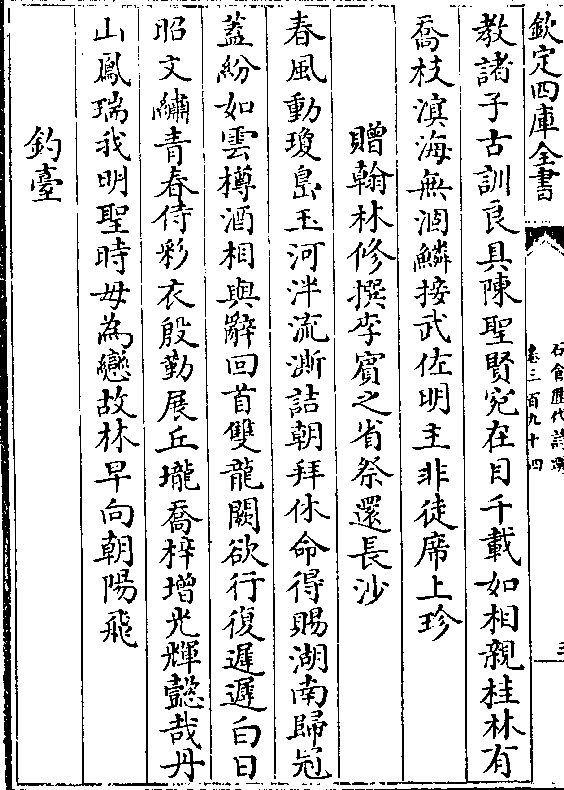 欽定四庫全書
石倉歷代詩選
卷三百九十四
教諸子古訓良具陳聖賢宛在目千載如相親桂林有
喬枝溟海無涸鱗接武佐明主非徒席上珍
贈翰林修撰李賓之省祭還長沙
春風動瓊島玉河泮流澌詰朝拜休命得賜湖南歸冠
蓋紛如雲樽酒相與辭回首雙龍闕欲行復遲遲白日
昭文繡青春侍彩衣殷勤展丘壠喬梓增光輝懿哉丹
山鳳瑞我明聖時毋為戀故林早向朝陽飛
釣臺